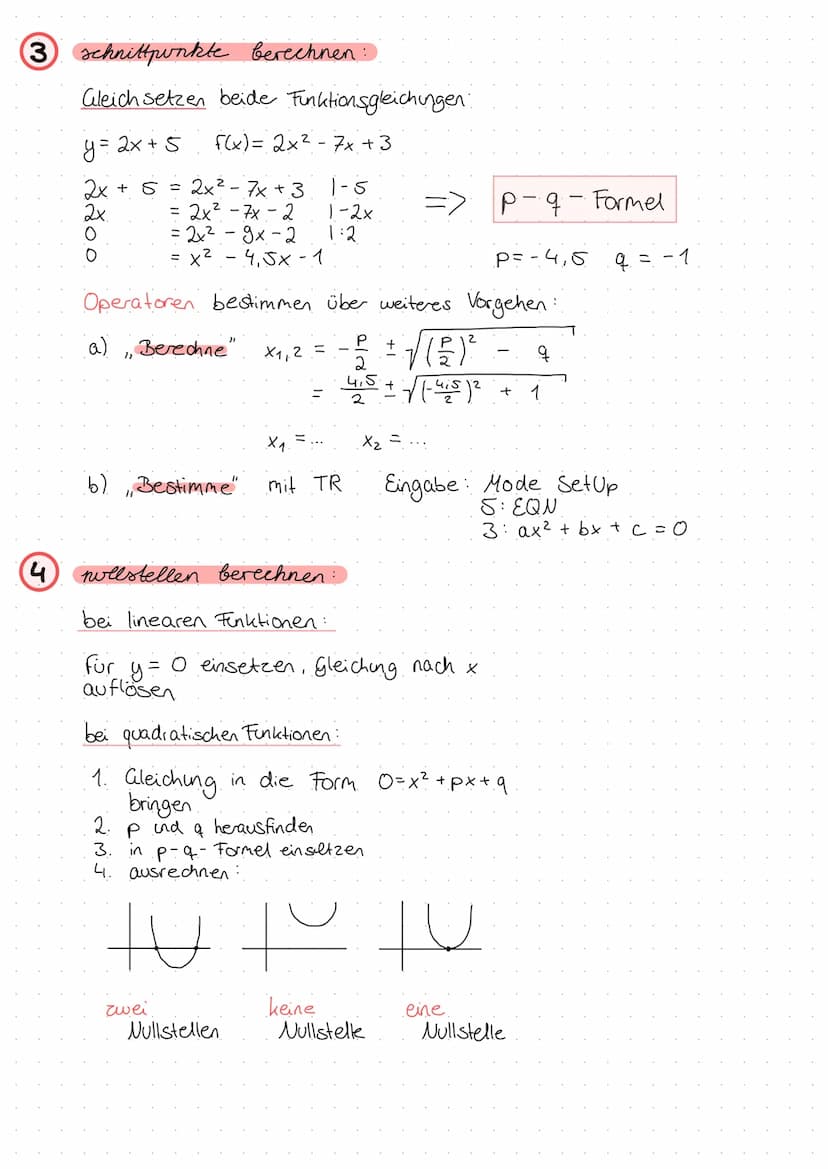 3 schnittpunkte berechnen:
Gleichsetzen beide Funktionsgleichungen:
y = 2x + 5 f(x) = 2x² - 7x + 3
2x + 5 = 2x² - 7x + 3 |-5
2x = 2x² - 7x - 2 |-2x
0 = 2x² - 9x - 2 |:2
0 = x² - 4,5x - 1
=> p-q-Formel
p = -4,5 q = -1
Operatoren bestimmen über weiteres Vorgehen:
a) „Berechne" x₁,₂ = -p/2 ± √((p/2)² - q)
= 4,5/2 ± √((-4,5/2)² + 1)
x₁ = ... x₂ = ...
b) „Bestimme" mit TR Eingabe: Mode SetUp
5: EQN
3: ax² + bx + c = 0
4 nullstellen berechnen:
bei linearen Funktionen:
für y = 0 einsetzen, Gleichung nach x
auflösen
bei quadratischen Funktionen:
1. Gleichung in die Form 0=x² + px + q
bringen
2. p und q herausfinden
3. in p-q-Formel einsetzen
4. ausrechnen:
zwei Nullstellen
keine Nullstelle
eine Nullstelle